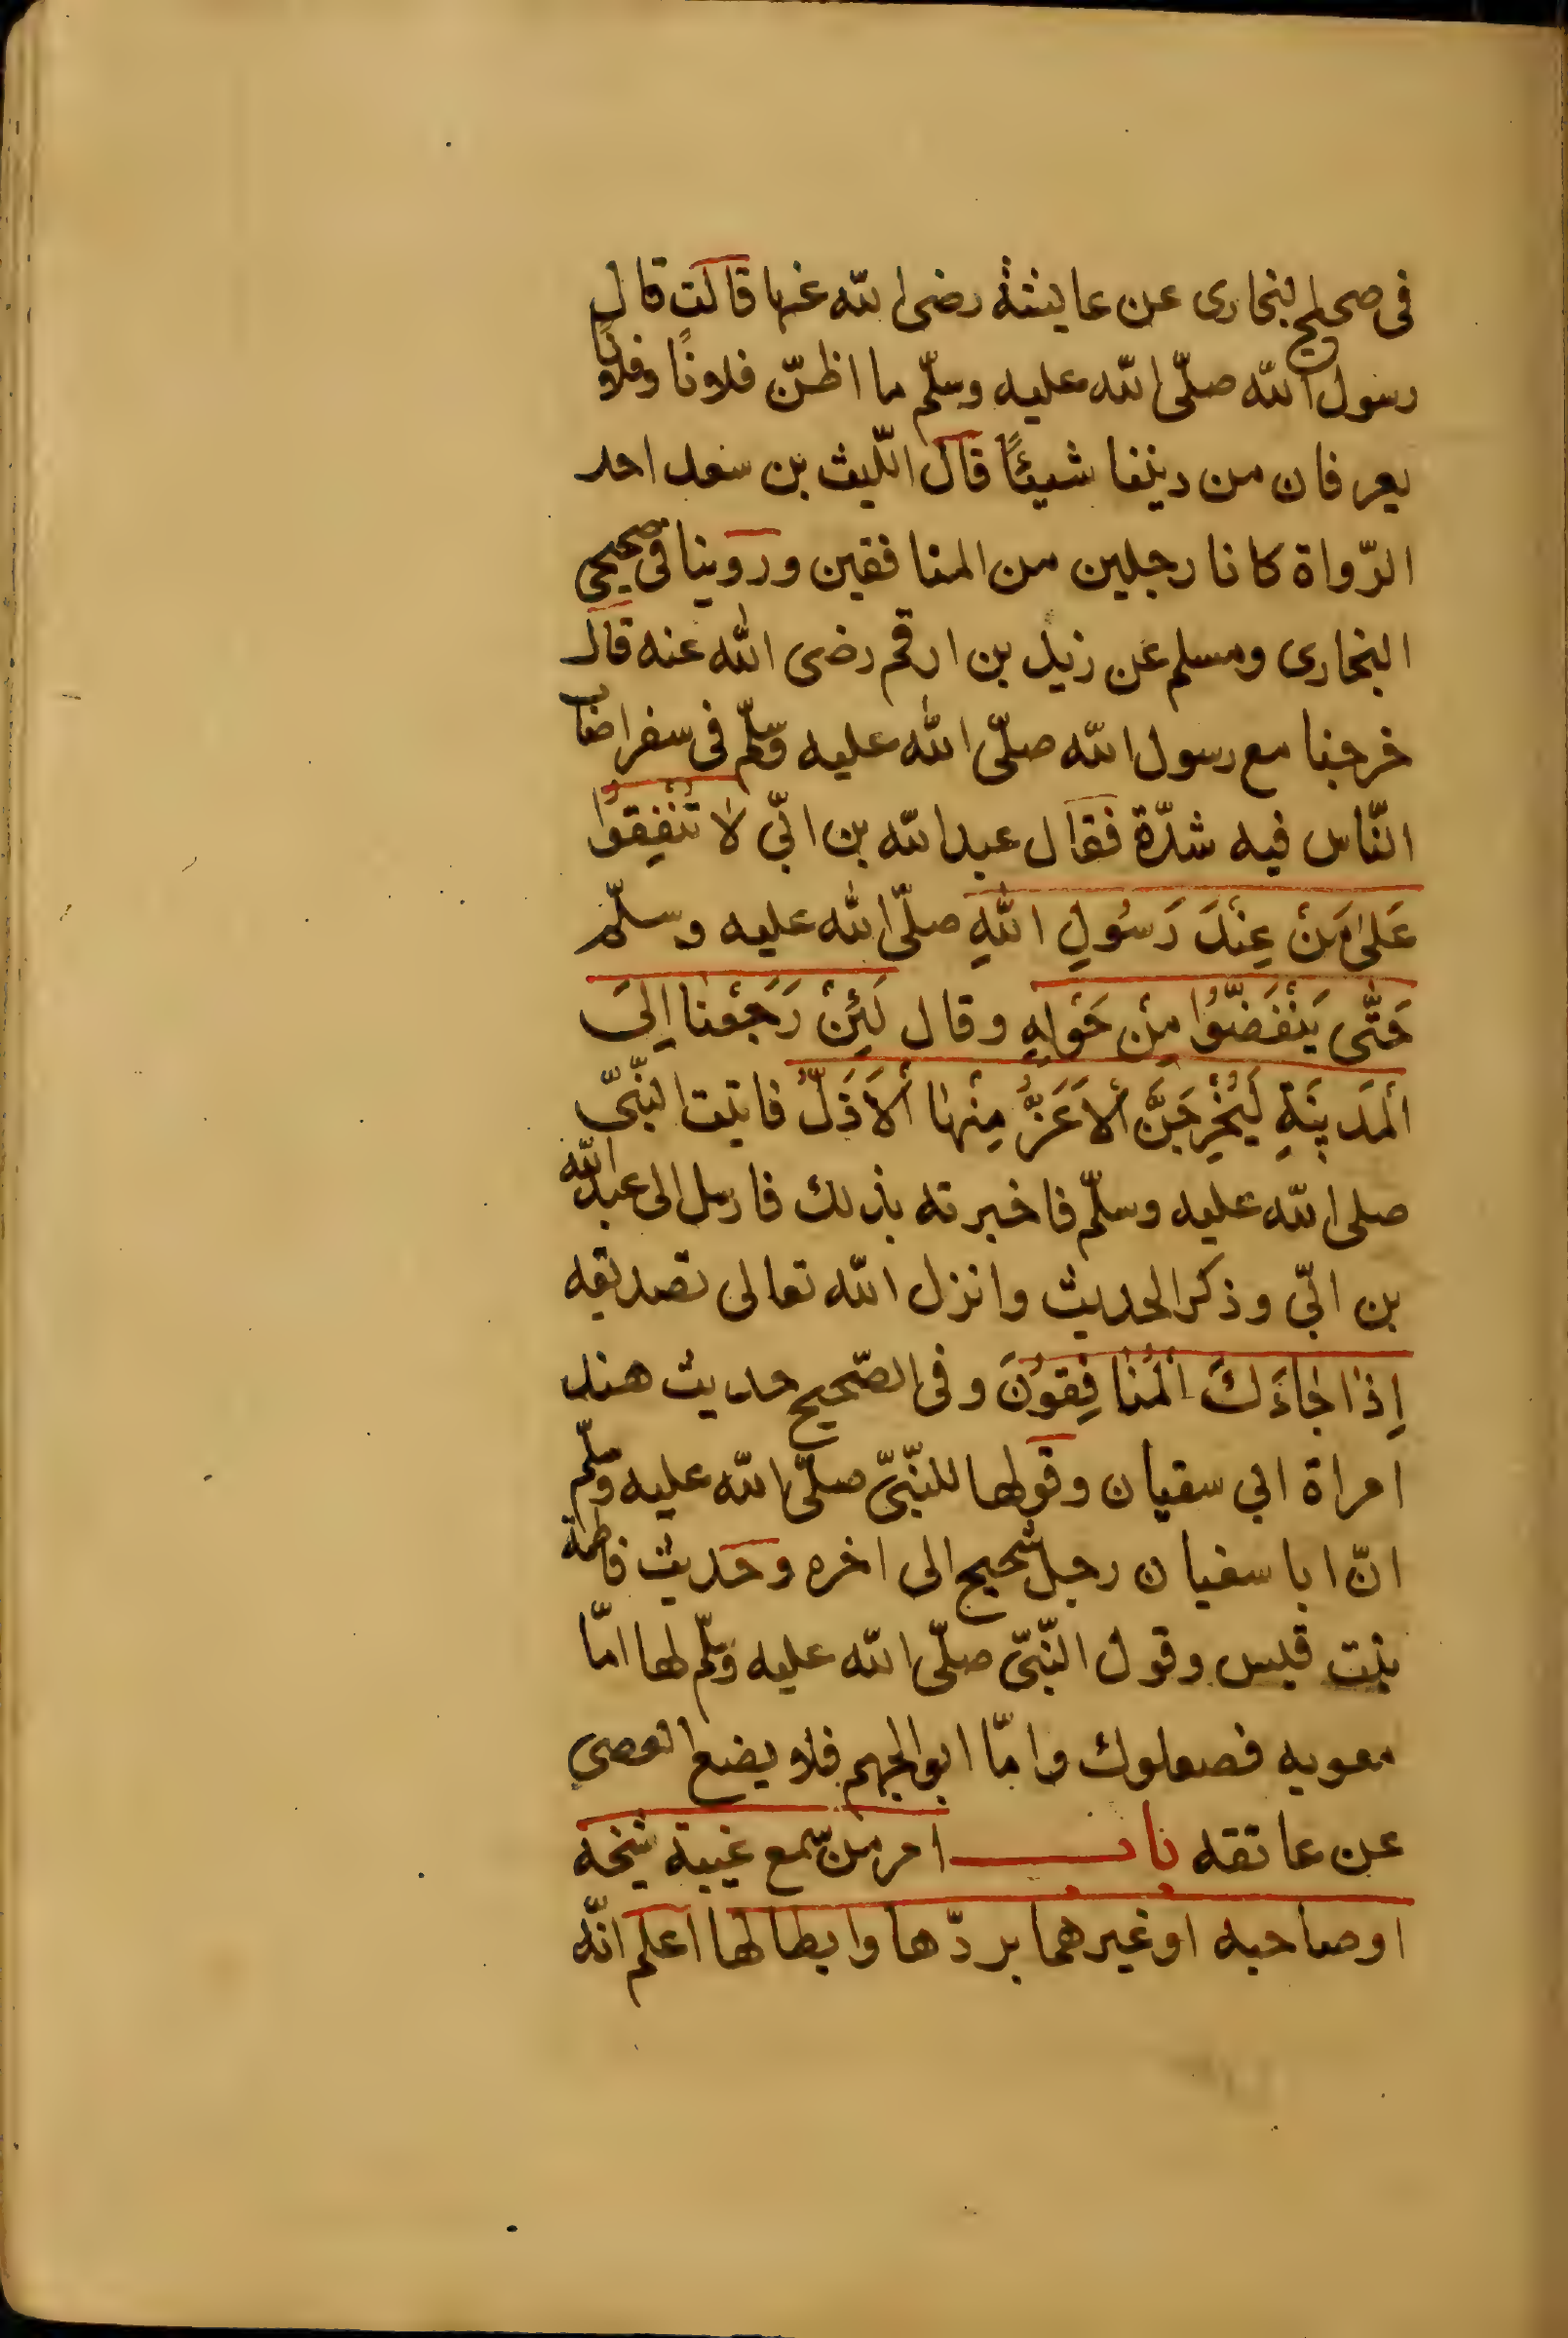 فى صحيح البخارى عن عايشة رضى الله عنها قالت قال
رسول الله صلّى الله عليه وسلّم ما اظنّ فلانًا وفلانًا
يعرفان من ديننا شيئًا قال اللّيث بن سعد احد
الرّواة كانا رجلين من المنافقين وروينا فى صحيحى
البخارى ومسلم عن زيد بن ارقم رضى الله عنه قال
خرجنا مع رسول الله صلّى الله عليه وسلّم فى سفر اصاب
النّاس فيه شدّة فقال عبد الله بن ابىّ لَا تُنْفِقُوا
عَلَى مَنْ عِنْدَ رَسُولِ اللّهِ صلّى الله عليه وسلّم
حَتَّى يَنْفَضُّوا مِنْ حَوْلِهِ وقال لَئِنْ رَجَعْنَا اِلَى
الْمَدِينَةِ لَيُخْرِجَنَّ الْاَعَزُّ مِنْهَا الْاَذَلَّ فاتيت النّبىّ
صلى الله عليه وسلّم فاخبرته بذلك فارسل الى عبد الله
بن ابىّ وذكر الحديث وانزل الله تعالى تصديقه
اِذَا جَاءَكَ الْمُنَافِقُونَ وفى الصّحيح حديث هند
امراة ابى سقيان وقولها للنّبىّ صلّى الله عليه وسلّم
انّ ابا سفيان رجل شحيح الى اخره وحديث فاطمة
بنت قيس وقول النّبىّ صلّى الله عليه وسلّم لها امّا
معويه فصعلوك وامّا ابو الجهم فلا يضع العصى
عن عاتقه باب امر من سمع غيبة شيخه
او صاحبه او غيرهما بردّها وابطالها اعلم انّه